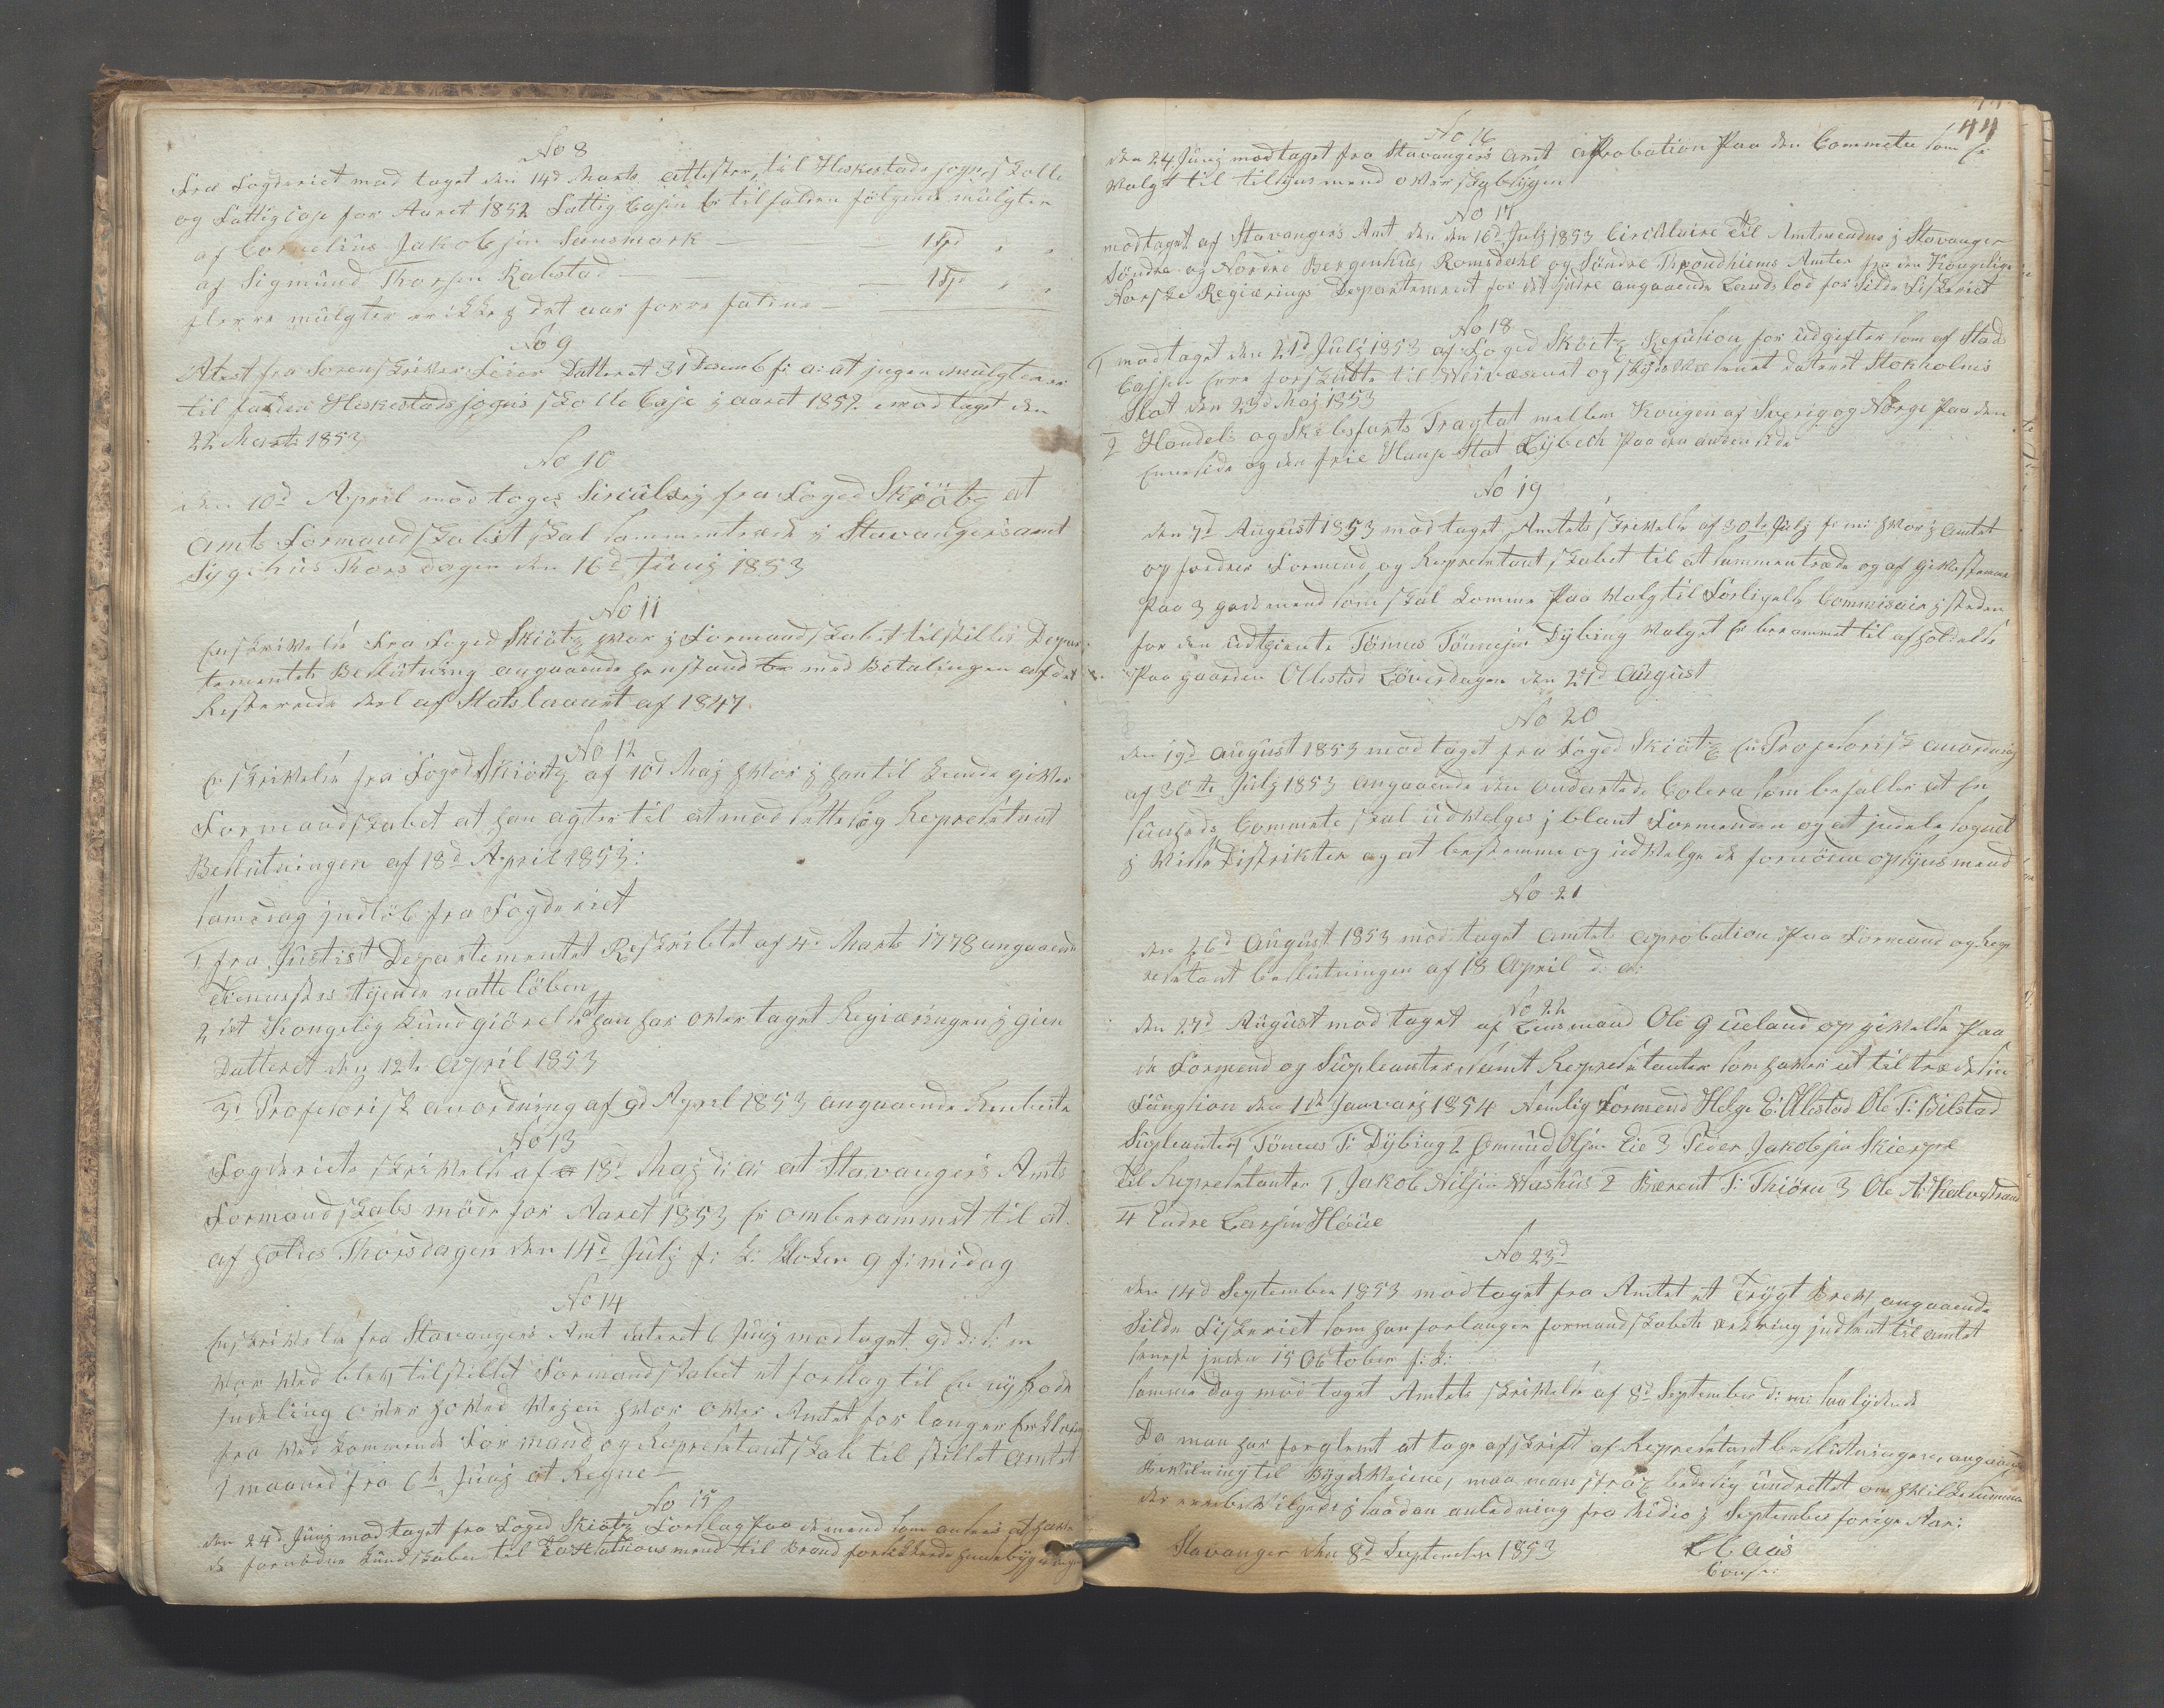 No 8
Fra Fogderiet mod taget den 14d Marts attester, til Heskestads sogns skolle
og Fattig Case for Aaret 1852 Fattig Casen Er tilfalden følgende mulgter
af Cornelius Jakobsen Lensmark — 1 Spd " "
af Sigmund Thorsen Rabstad — 1 Spd " "
flerre mulgter er ikke j det aar forre faldne
No 9
Atest fra Sorenskriver Feier Datteret 31 Desemb f: a: at jngen mulgter er
til falden Heskestads sogns skolle Case j aaret 1852. modtaget den
22 Marts 1853
No 10
den 10d April mod toges Sirculærj fra Foged Skiøtz at
amts Formandskabet skal sammentræde j Stavangers amt
Sygehus Thorsdagen den 16d Junj 1853
No 11
En skrivelse Fra Foged Skiøtz hvor j Formandskabet tilstilles Depar-
tementets Beslutning angaaende henstand med Betalingen af det
Resterende del af Statslaanet af 1847
No 12
En skrivelse fra Foged Skiøtz af 10d Maj hvor j han til kiende giver
Formandskabet at han agter til at mod sette sig Represetant
Beslutningen af 18d April 1853:
samedag jndløb fra Fogderiet
1. fra Justist Departementet Reskribtet af 4d Marts 1778 angaaende
Tienesters Tyende natteløben
2 det Kongelig Kundgiørelse at han har overtaget Regiæringen j gien
Datteret den 12te April 1853
3d Profisorisk anordning af 9d Apprel 1853 angaaende
No 13
Fogderiets skrivelse af 18d Maj d: a: at Stavangers Amts
Formandskabs møde for Aaret 1853 Er omberammet til at
af holdes Thorsdagen den 14d Julj f: k: kloken 9 f:midag
No 14
En skrivelse fra Stavangers Amt dateret 6 Junj modtaget 9d d: s: m
hvor ved blev tilstillet Formandskabet et forslag til En ny Rode
Jndeling over hoved Vejen hvor over Amtet forlanger Erklæring
fra ved kommende Formand og Represetantskab til stillet Amtet
1 maaned fra 6te Junj at Regne —
No 15
den 24d Junj modtaget fra Foged Skiøtz Forslag Paa de mend som anses at have
de fornødne Kundskaber til Taxsationsmend til Brand forsikrede huusbygninger
44
No 16
den 24 Junj modtaget fra Stavangers amt aProbation Paa den Commete som er
valgt til tilsynsmend over skabsygen
No 17
modtaget af Stavangers Amt den den 16d Julj 1853 Circulaire til Amtmendene j Stavanger
Søndre og Nordre Bergenhus, Romsdahl og Søndre Throndhiems Amter fra den Kongelige
Norske Regiærings Departement for det jndre angaaende Landslod for Silde Fiskeriet
No 18
1 modtaget den 21d Julj 1853 af Foged Skiøtz Refusion for udgifter som af Stads
Cassen Erre forskudte til Veivæsenet og skydsvæsenet dateret Stokholms
Slot den 23d Maj 1853
2 Handels og Skibsfarts Tragtat mellem Kongen af Sverig og Norge Paa den
Enneside og den frie Hanse Stat Lybech Paa den anden side
No 19
den 7d August 1853 modtaget Amtets skrivelse af 30te Julj f: m: hvor j Amtet
opfordrer Formend og Represetantskabet til at sammentræde og af give stemme
Paa 3 gode mend som skal komme Paa Valg til Forligelse Commisair j steden
for den udtiente Tønnes Tønnesen Dybing valget er berammet til afholdelse
Paa gaarden Ollestad Løverdagen den 27d August
No 20
den 19d August 1853 modtaget fra Foged Skiøtz En Profisorisk anordning
af 30te Julj 1853 angaaende den ondartede Colera som befaller at En
sunheds Commete skal udvelges j blant Formenden og at jndele sognet
j Visse Distrikter og at bestemme og udvelge de fornødne opsynsmend
No 21
den 26d August 1853 modtaget Amtets aprobation Paa Formand og Repr
resetant beslutningen af 18 April d: a:
No 22
den 27d August mod taget af Lensmand Ole G Ueland op givelse Paa
de Formend og Supleanter samt Represetanter som haver at til træde sin
Fungsion den 1de Janvarj 1854 Nemlig Formend Helge E: Ollestad Ole T: Bilstad
Supleanter 1 Tønnes T: Dybing 2 Omund Olsen Eie 3 Peder Jakobsen Skierpe
til Represetanter 1 Jakob Nilsen Washus 2 Berent T: Thiørn 3 Ole A: Kalvstrand
4 Endre Larsen Høüe
No 23d
den 14d September 1853 modtaget fra Amtet et Trygt Brev angaaende
Silde Fiskeriet som han forlanger formandskabets erkering jndsent til Amtet
senest jnden 15 October f: k:
samme Dag mod taget Amtets skrivelse af 8d September d: m: saalydende
Da man har forglemt at tage afskrift af Represetant beslutningen, angaaende
Bevilning til Bygdeveiene, maa man straz bede sig undrettet om hvilke summer
der ere bevilgede j saadan anledning fra Midio j September forige Aar:
Stavanger den 8d September 1853
Const: